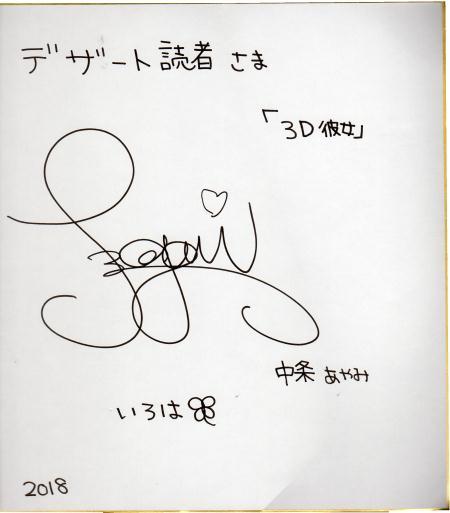 デザート読者 さま
「3D彼女」
中条 あやみ
いろは
2018